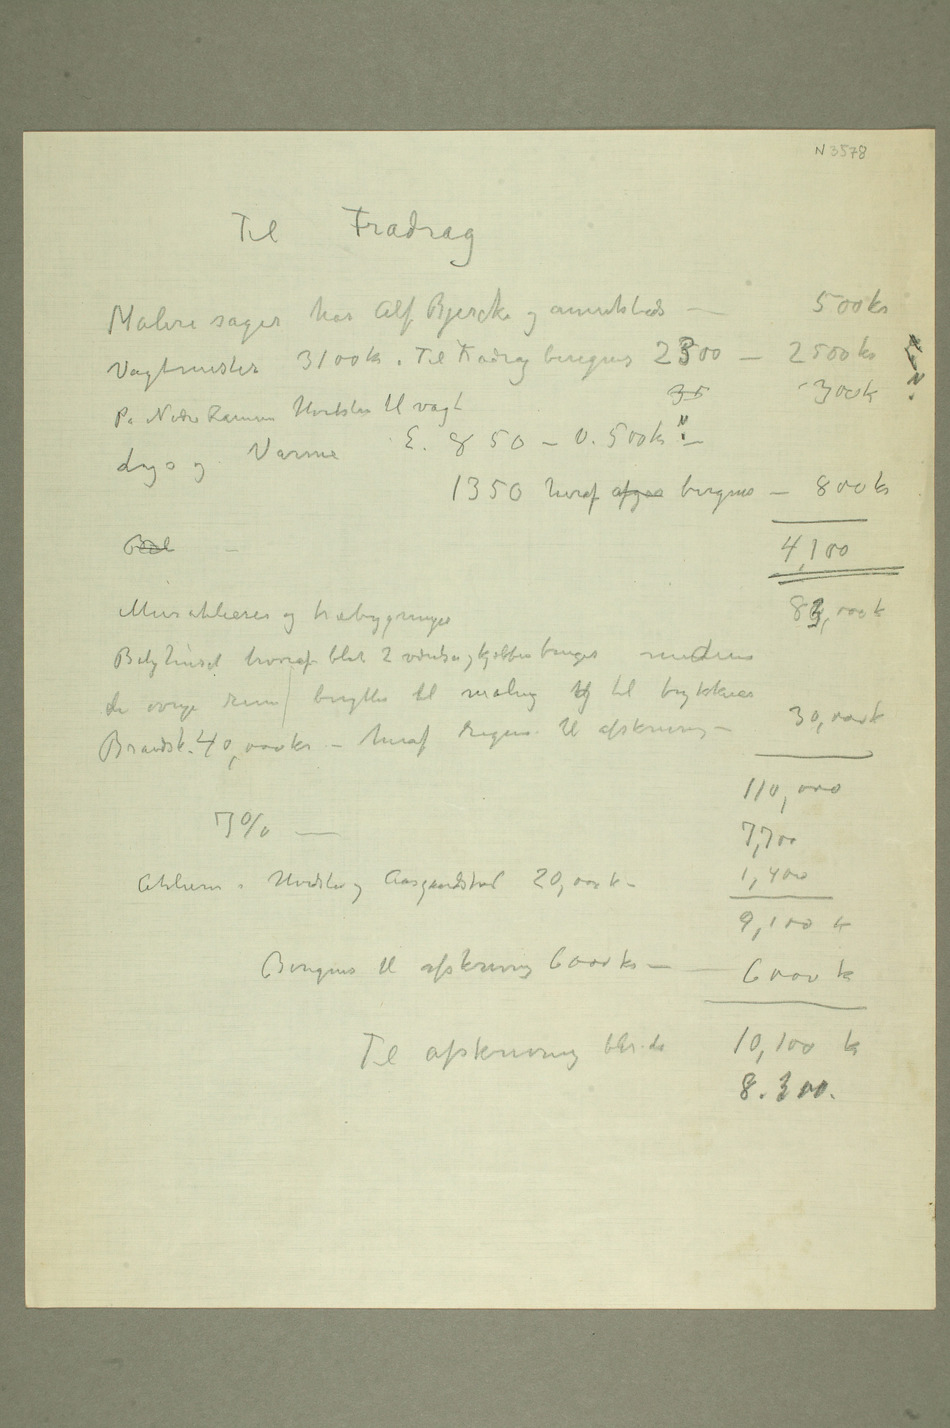 N 3578
Til Fradrag
Malersager hos Alf Bjercke og annetsteds — 500 kr
Vagtmester 3100 k. Til Fradrag beregnes 2300 — 2500 kr
På Nedre Ramm Hvidsten til vagt 35 300 k
Lys og Varme E. 850 — V. 500 kr —
1350 hvoraf afgaa beregnes — 800 kr
4,100
Muratelierer og træbygninger 80,000 k
Bolighuset hvoraf blot 2 værelser og kjøkken bruges medens
de øvrige rum benyttes til maling og til trykkeri
Brandst. 40,000 kr. — heraf regnes til afskrivning — 30,000 k
110,000
7% — 7,700
Atelierer i Hvidsten og Aasgaardstrand 20,000 k — 1,400
9,100 k
Beregnes til afskrivning 6000 kr — 6000 k
Til afskrivning blir da 10,100 k
8.300.